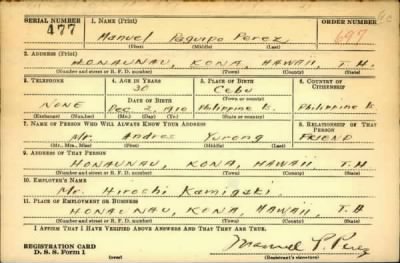 SERIAL NUMBER 1. NAME (Print) ORDER NUMBER
477 Manuel Paguipo Perez 697
(First) (Middle) (Last)
2. ADDRESS (Print)
HONAUNAU, KONA, HAWAII, T.H.
(Number and street or R. F. D. number) (Town) (County) (State)
3. TELEPHONE 4. AGE IN YEARS 5. PLACE OF BIRTH 6. COUNTRY OF CITIZENSHIP
30 Cebu
DATE OF BIRTH (Town or county)
NONE Dec. 2, 1910 Philippine Is. Philippine Is.
(Exchange) (Number) (Mo.) (Day) (Yr.) (State or country)
7. NAME OF PERSON WHO WILL ALWAYS KNOW YOUR ADDRESS 8. RELATIONSHIP OF THAT PERSON
Mr. Andres Yurong FRIEND
(Mr., Mrs., Miss) (First) (Middle) (Last)
9. ADDRESS OF THAT PERSON
HONAUNAU, KONA, HAWAII, T.H.
(Number and street or R. F. D. number) (Town) (County) (State)
10. EMPLOYER'S NAME
Mr. Hiroshi Kamigaki
11. PLACE OF EMPLOYMENT OR BUSINESS
HONAUNAU, KONA, HAWAII, T.H.
(Number and street or R. F. D. number) (Town) (County) (State)
I AFFIRM THAT I HAVE VERIFIED ABOVE ANSWERS AND THAT THEY ARE TRUE.
REGISTRATION CARD
D. S. S. Form 1 (over) Manuel P. Perez
(Registrant's signature)